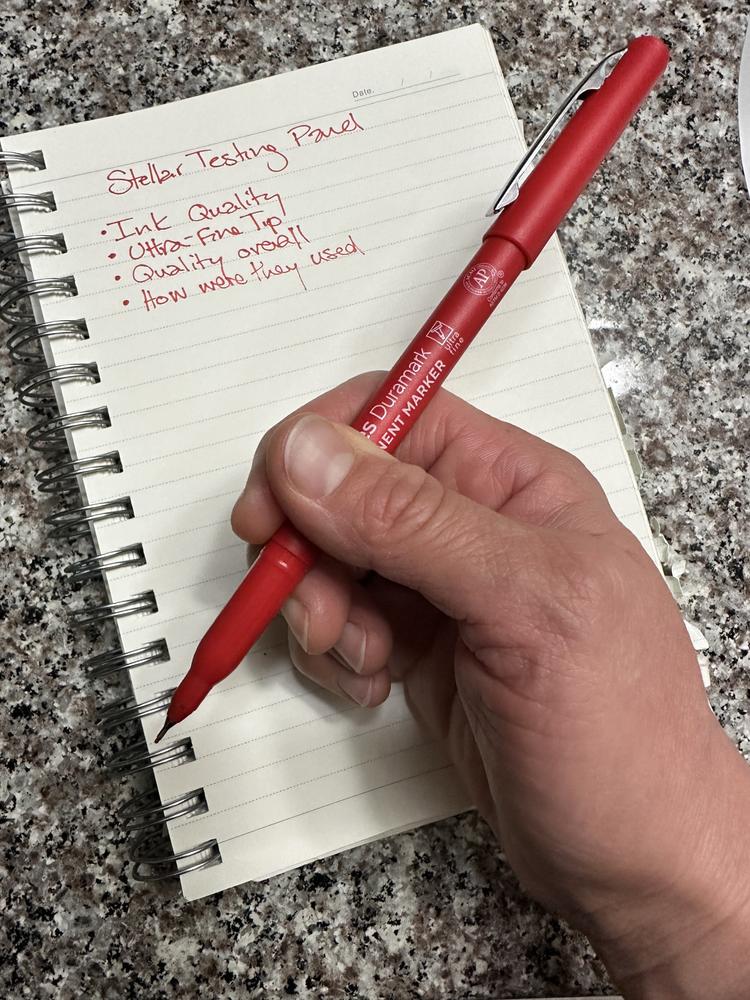 Date. / /
Stellar Testing Panel
• Ink Quality
• Ultra-Fine Tip
• Quality overall
• How were they used
AP
ES Duramark ultra fine
NENT MARKER